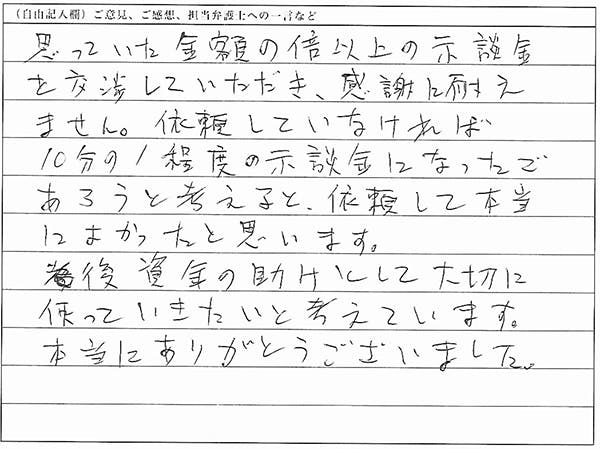 (自由記入欄)ご意見、ご感想、担当弁護士への一言など
思っていた金額の倍以上の示談金
を交渉していただき、感謝に耐え
ません。依頼していなければ
10分の1程度の示談金になったで
あろうと考えると、依頼して本当
によかったと思います。
後資金の助けにして大切に
使っていきたいと考えています。
本当にありがとうございました。